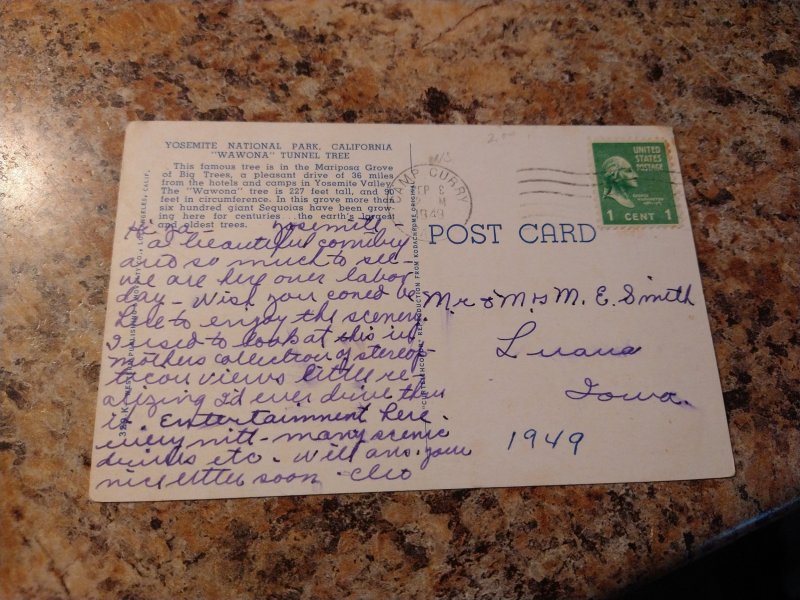 YOSEMITE NATIONAL PARK, CALIFORNIA
"WAWONA" TUNNEL TREE
This famous tree is in the Mariposa Grove
of Big Trees, a pleasant drive of 36 miles
from the hotels and camps in Yosemite Valley.
The "Wawona" tree is 227 feet tall, and 90
feet in circumference. In this grove more than
six hundred giant Sequoias have been grow-
ing here for centuries ... the earth's largest
and oldest trees.
Yosemite -
a beautiful country
and so much to see -
we are here over labor
day - Wish you coned be
here to enjoy the scenery.
I used to look at this in
mothers collection of stereop-
ticon views little re-
alizing I'd ever drive thru
it. Entertainment here
every nite - many scenic
drives etc. Will ans. your
nice letter soon. Cleo
CAMP CURRY
SEP 8
M
1949
UNITED
STATES
POSTAGE
GEORGE
WASHINGTON
1 CENT 1
POST CARD
Mr & Mrs M. E. Smith
Luana
Iowa.
1949
REPRODUCTION FROM KODACHROME ORIGINAL